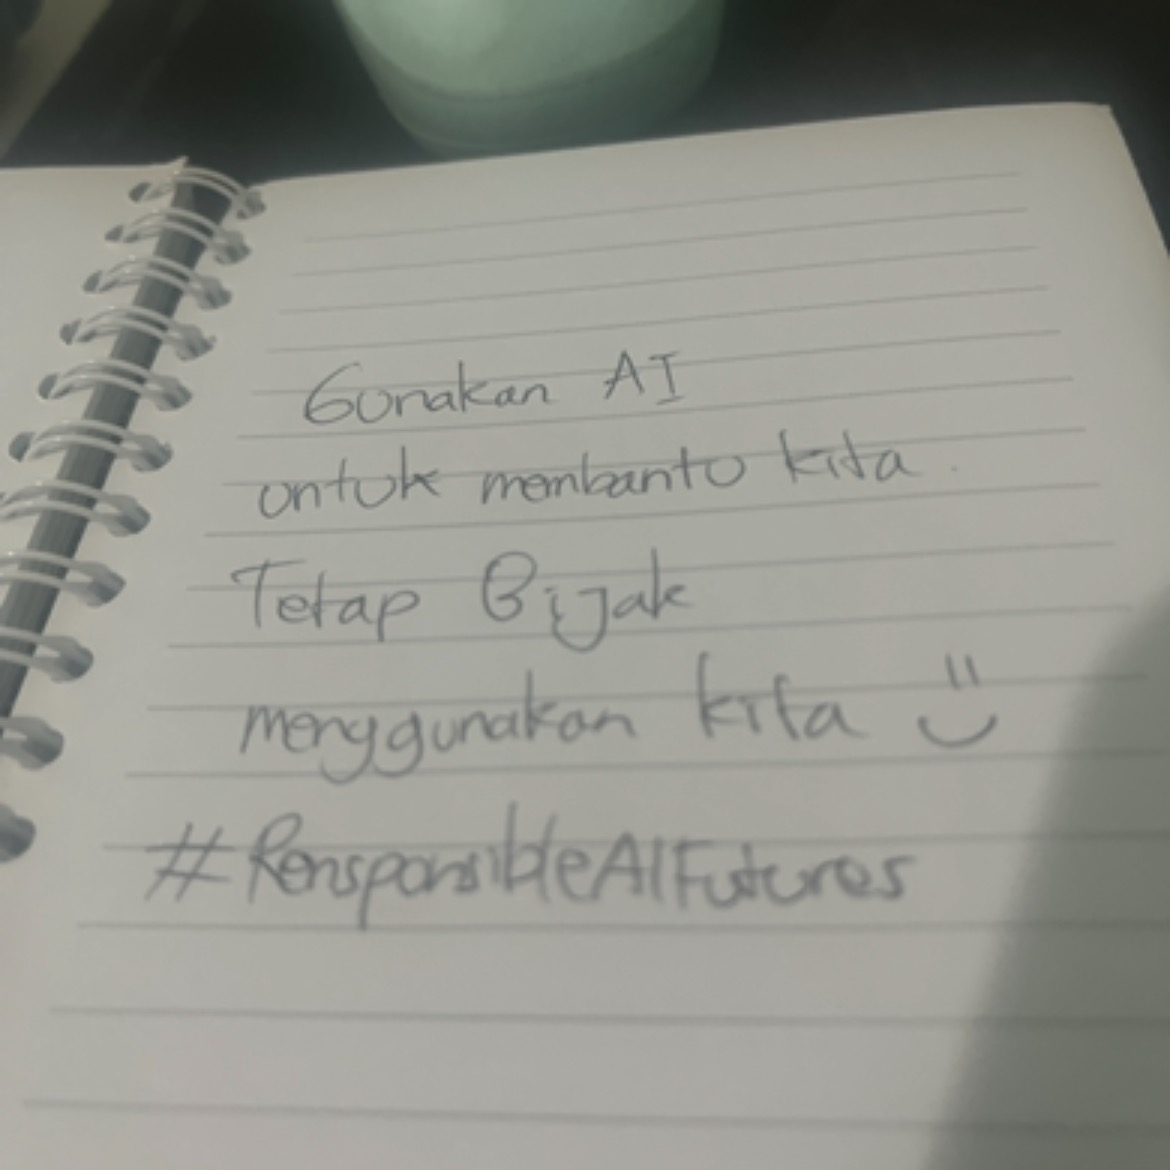 Gunakan AI
untuk membantu kita.
Tetap Bijak
menggunakan kita
#RensponsibleAIFutures